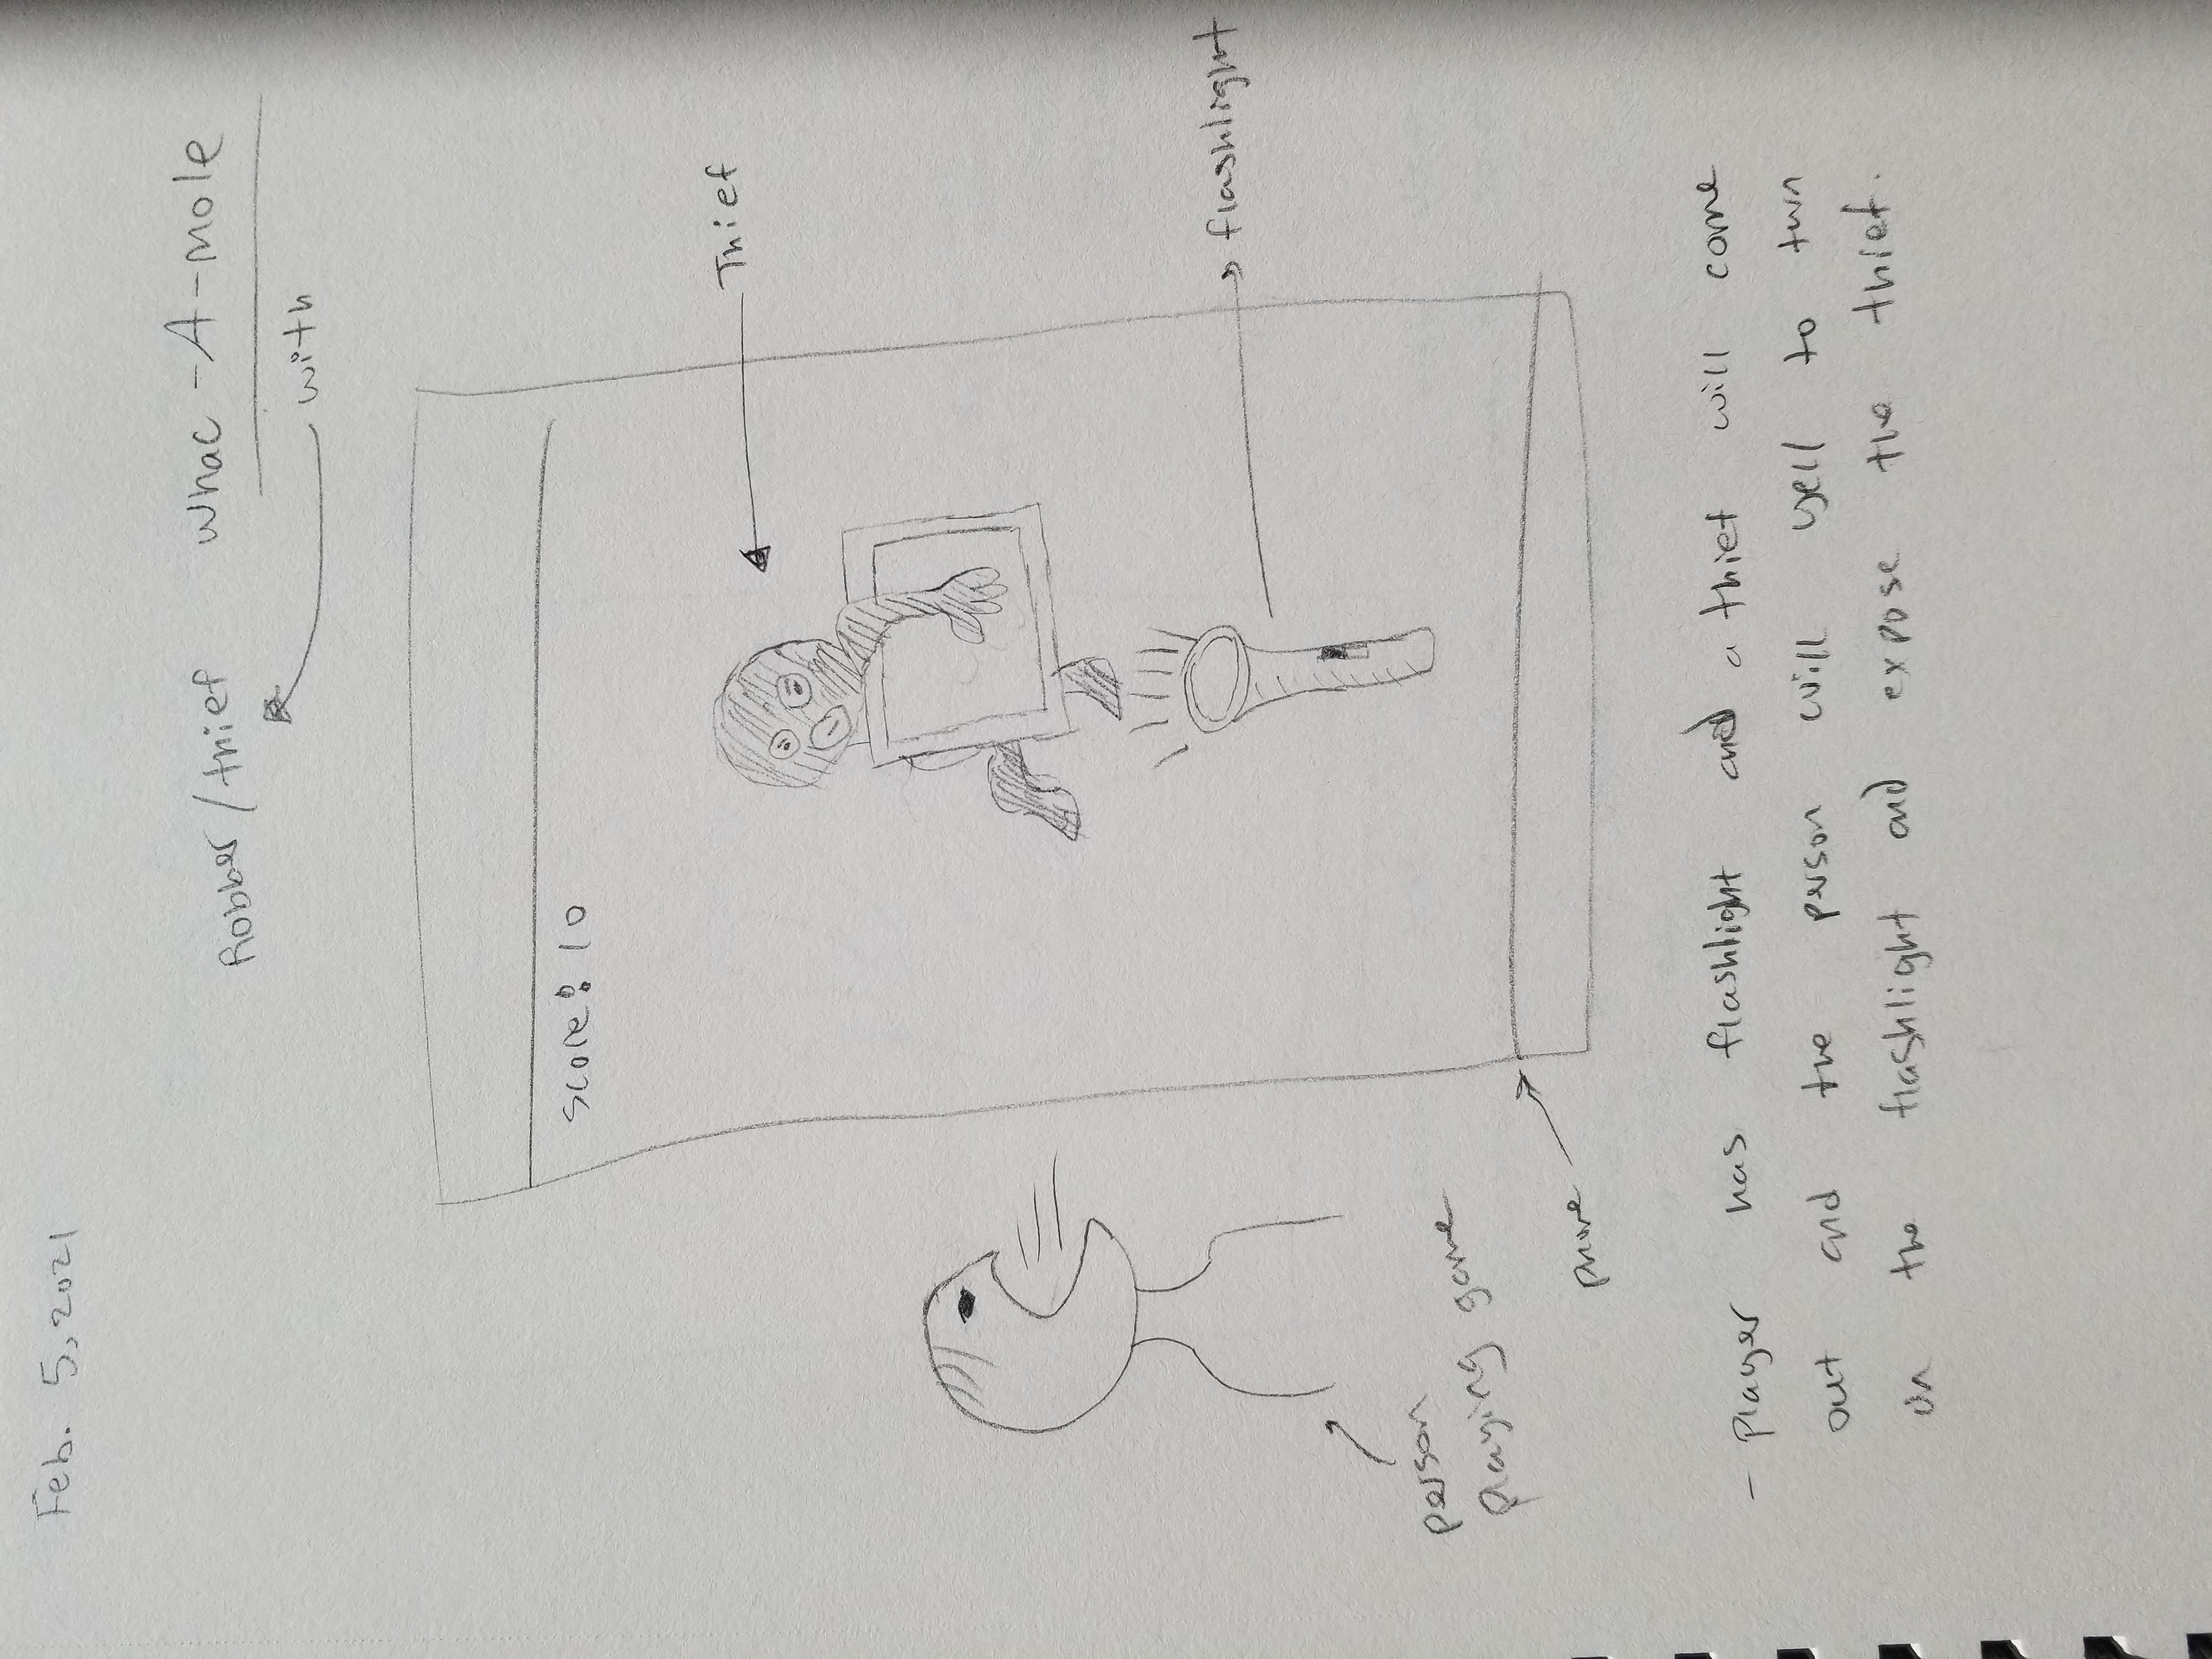 Feb. 5, 2021
Robber / thief
Whac-A-Mole
with
Score: 10
Thief
flashlight
person
playing game
phone
- player has flashlight and a thief will come
out and the person will yell to turn
on the flashlight and expose the thief.